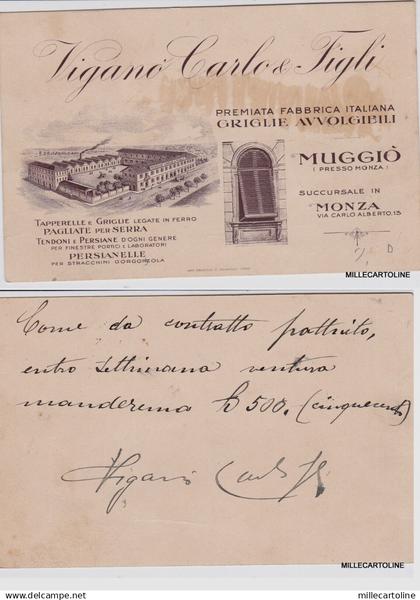 Viganò Carlo & Figli
PREMIATA FABBRICA ITALIANA
GRIGLIE AVVOLGIBILI
MUGGIÒ
(PRESSO MONZA)
SUCCURSALE IN
MONZA
VIA CARLO ALBERTO, 13
TAPPERELLE E GRIGLIE LEGATE IN FERRO
PAGLIATE PER SERRA
TENDONI E PERSIANE D'OGNI GENERE
PER FINESTRE PORTICI E LABORATORI
PERSIANELLE
PER STRACCHINI GORGONZOLA
MILLECARTOLINE
Come da contratto pattuito,
entro settimana ventura
manderemo £ 500. (cinquecento)
Viganò Carlo
MILLECARTOLINE
www.delcampe.net
millecartoline